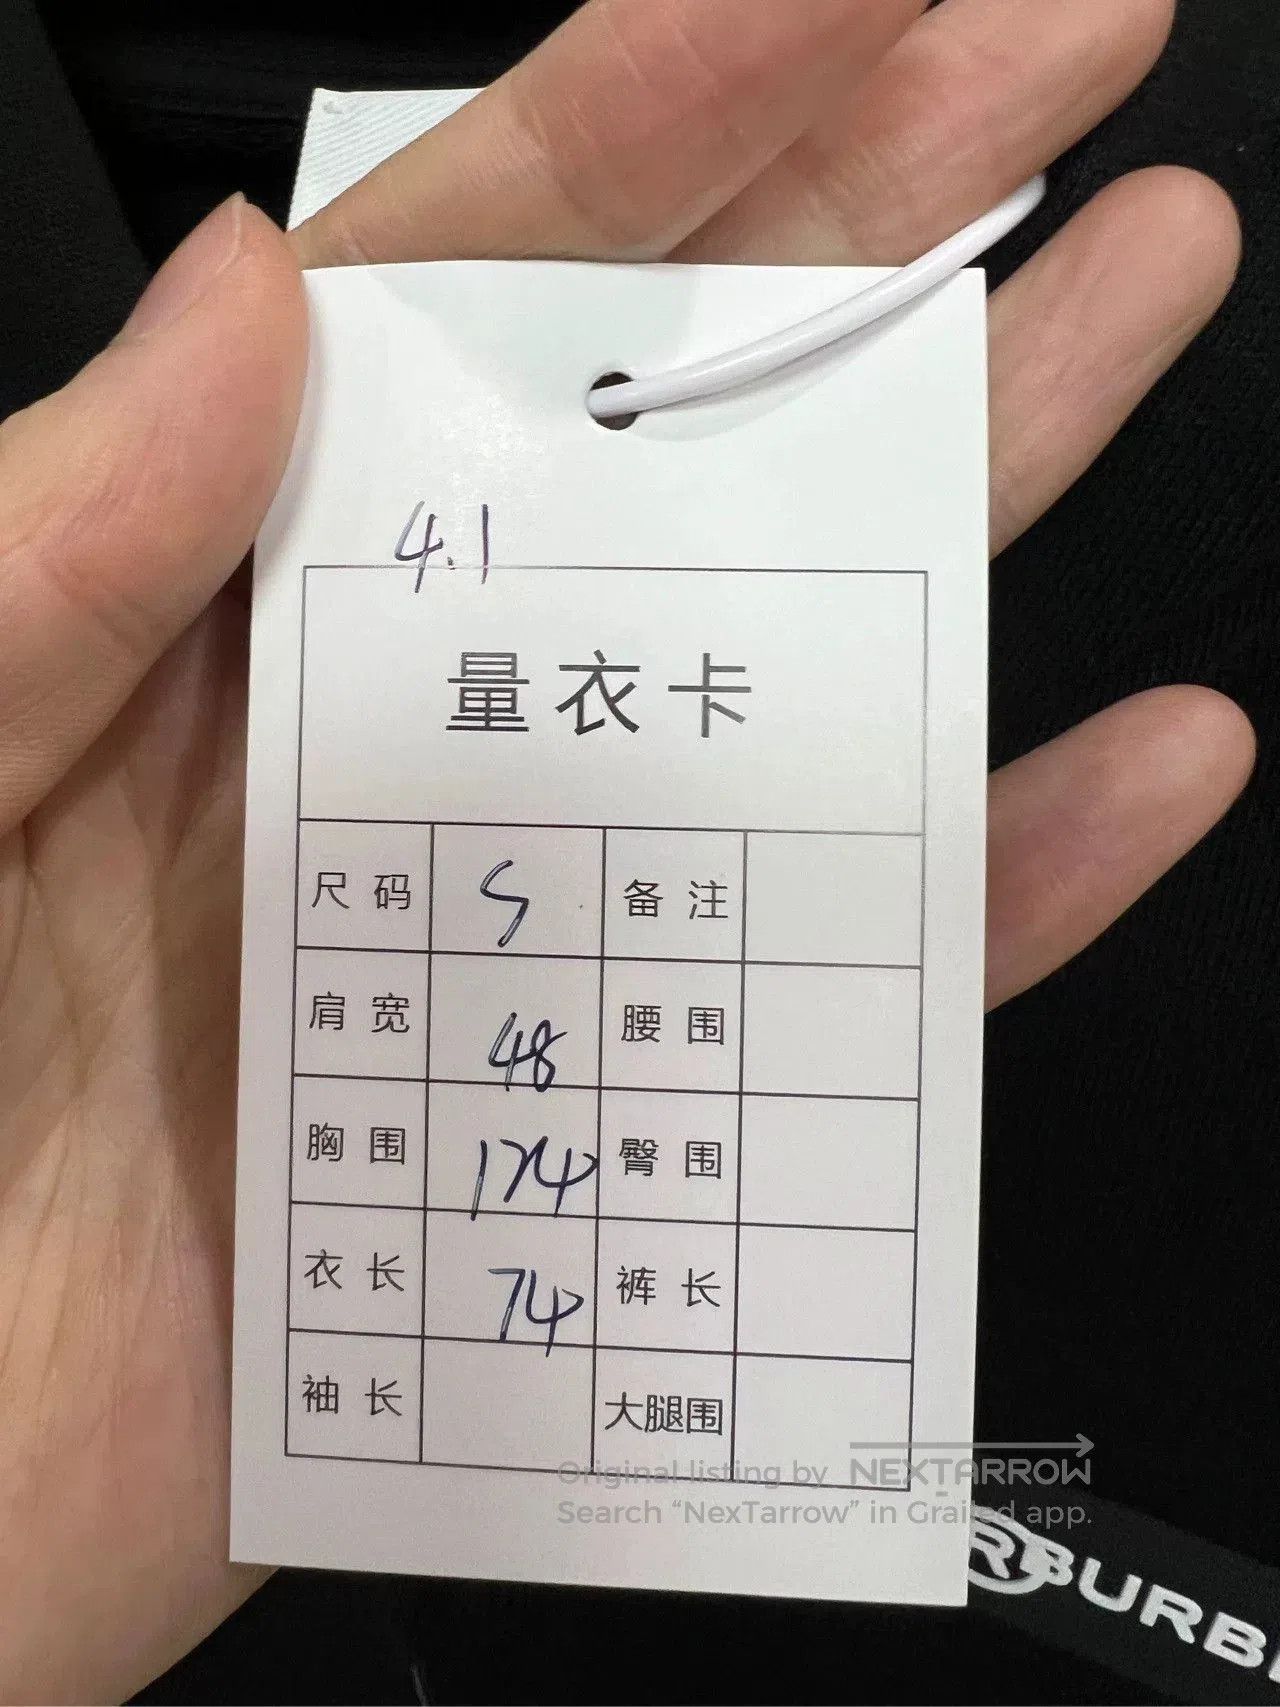 4.1
量衣卡
尺码 S 备注
肩宽 48 腰围
胸围 124 臀围
衣长 74 裤长
袖长 大腿围
Original listing by NEXTARROW
Search “NexTarrow” in Grailed app.
BURB